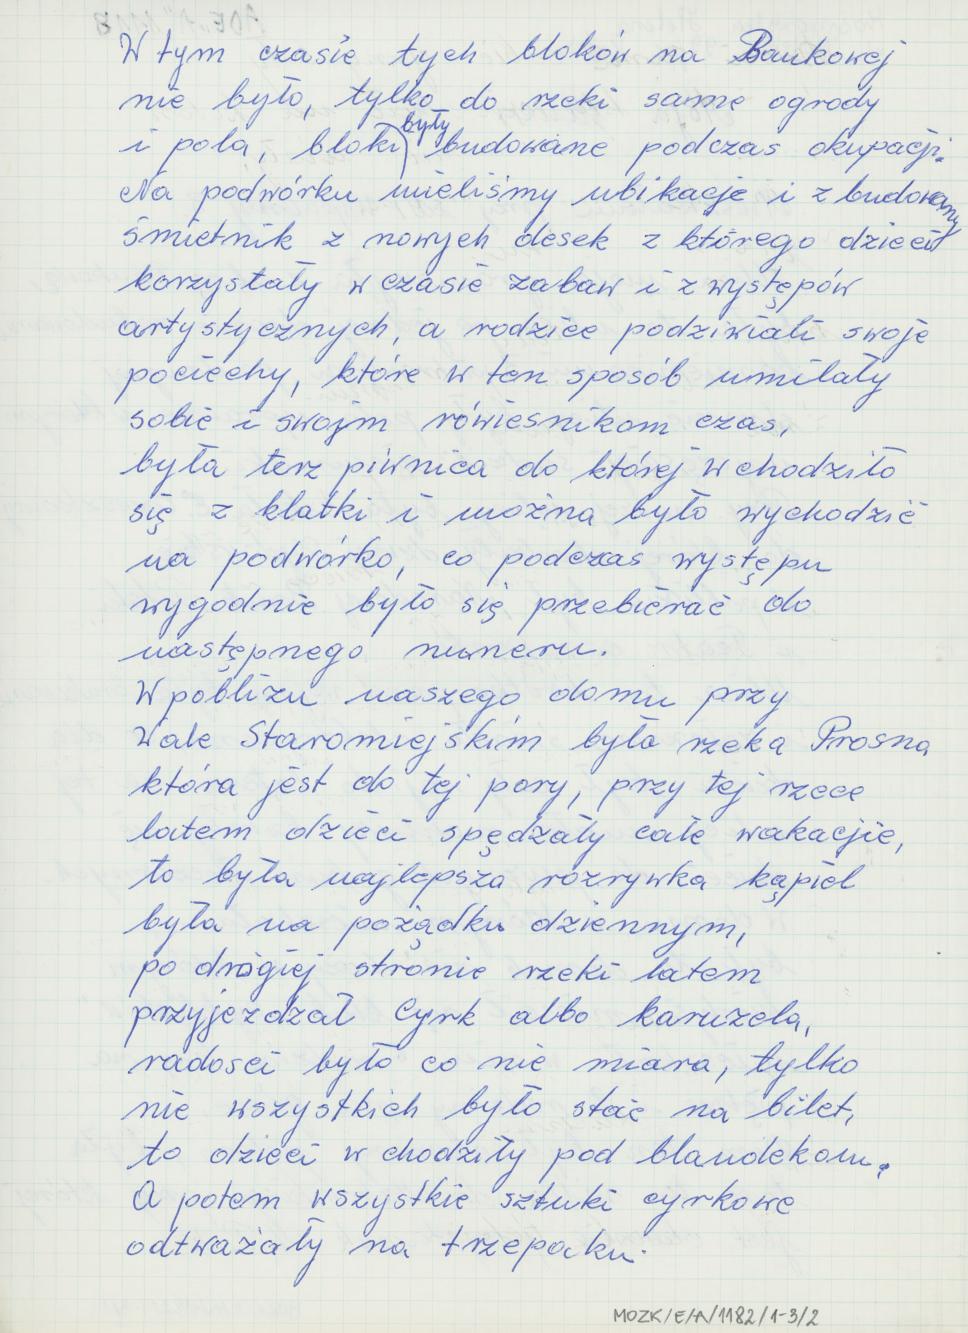 W tym czasie tych bloków na Bankowej
nie było, tylko do rzeki same ogrody
i pola, bloki były budowane podczas okupacji.
Na podwórku mieliśmy ubikacje i zbudowany
śmietnik z nowych desek z którego dzieci
korzystały w czasie zabaw i z występów
artystycznych, a rodzice podziwiali swoje
pociechy, które w ten sposób umilały
sobie i swojm rówiesnikom czas,
była terz piwnica do której wchodziło
się z klatki i można było wychodzić
na podwórko, co podczas występu
wygodnie było się przebierać do
następnego numeru.
W pobliżu naszego domu przy
Wale Staromiejśkim była rzeka Prosna
która jest do tej pory, przy tej rzece
latem dzieci spędzały całe wakacjie,
to była najlepsza rozrywka kąpiel
była na pożądku dziennym,
po drógiej stronie rzeki latem
przyjeżdzał Cyrk albo karuzela,
radosci było co nie miara, tylko
nie wszystkich było stać na bilet,
to dzieci wchodziły pod blandekom.
A potem wszystkie sztuki cyrkowe
odtważały na trzepaku.
MOZK/E/A/1182/1-3/2